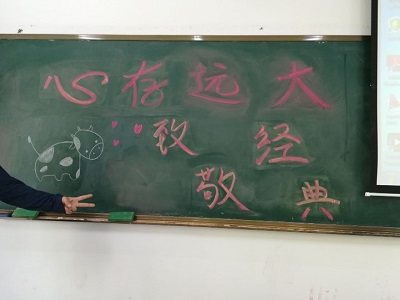 心存远大
致经
敬典